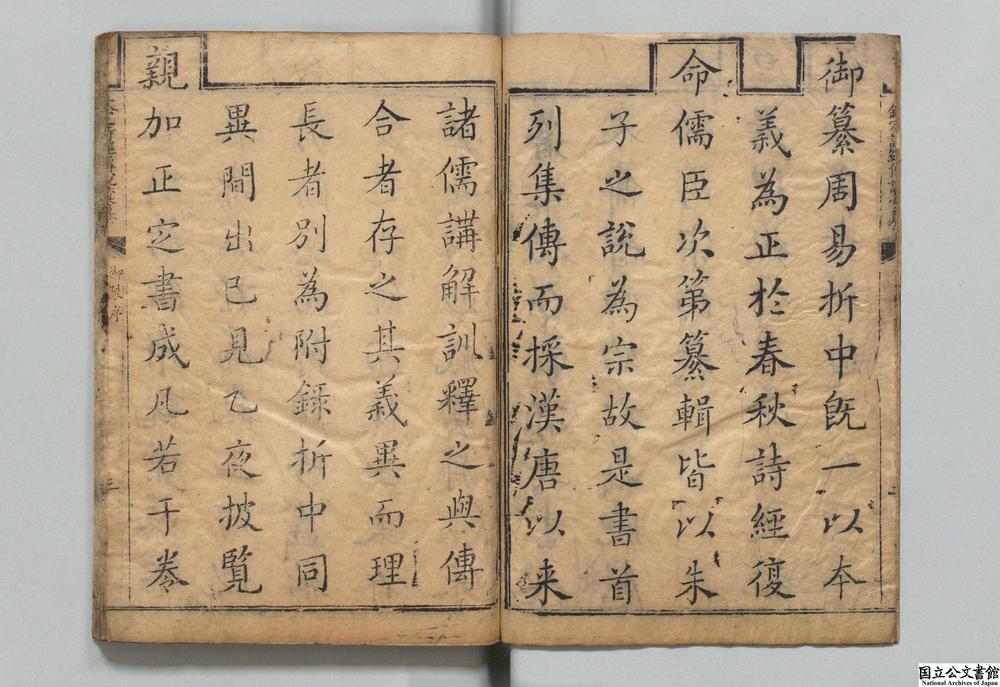 御纂周易折中旣一以本
義為正於春秋詩經復
命儒臣次第纂輯皆以朱
子之說為宗故是書首
列集傳而採漢唐以来
諸儒講解訓釋之與傳
合者存之其義異而理
長者別為附錄折中同
異間出己見乙夜披覽
親加正定書成凡若干卷
御製序
国立公文書館
National Archives of Japan